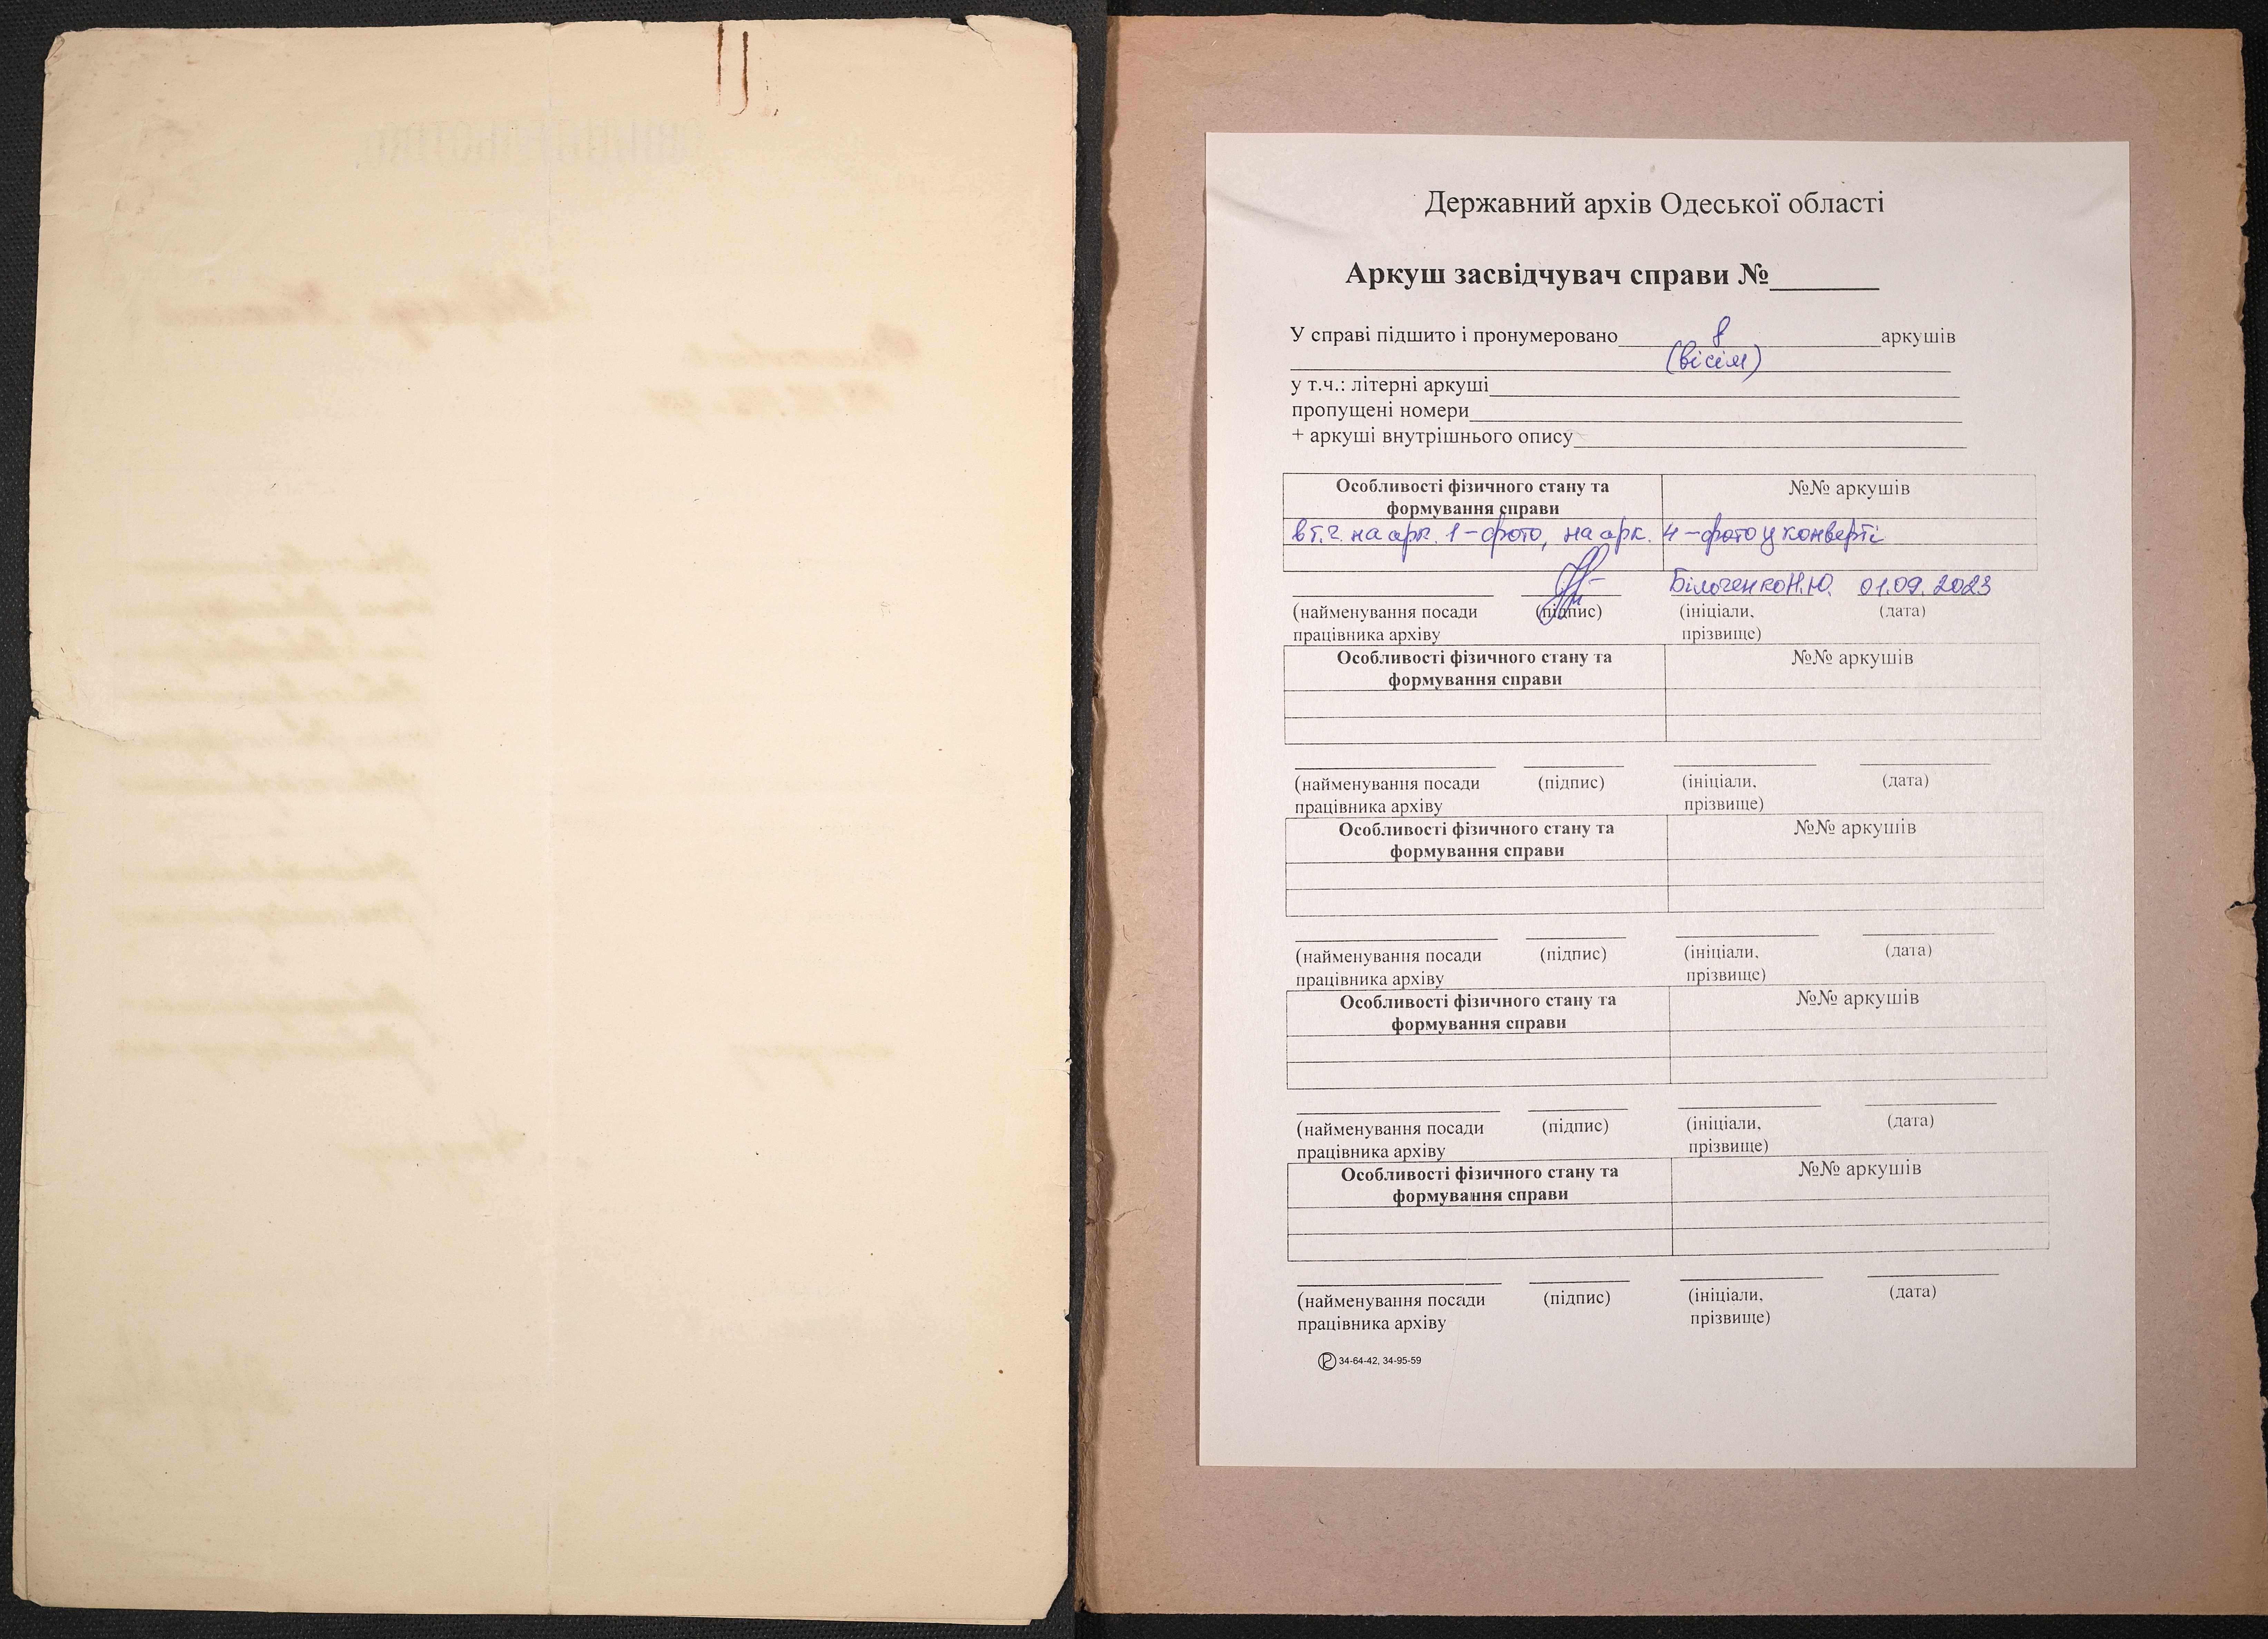 Державний архів Одеської області
Аркуш засвідчувач справи №
У справі підшито і пронумеровано 8 аркушів
(вісім)
у т.ч.: літерні аркуші
пропущені номери
+ аркуші внутрішнього опису
Особливості фізичного стану та формування справи №№ аркушів
в т.ч. на арк. 1 – фото, на арк. 4 – фото у конверті
Білоченко Н.Ю. 01.09.2023
(найменування посади (підпис) (ініціали, (дата)
працівника архіву прізвище)
Особливості фізичного стану та формування справи №№ аркушів
(найменування посади (підпис) (ініціали, (дата)
працівника архіву прізвище)
Особливості фізичного стану та формування справи №№ аркушів
(найменування посади (підпис) (ініціали, (дата)
працівника архіву прізвище)
Особливості фізичного стану та формування справи №№ аркушів
(найменування посади (підпис) (ініціали, (дата)
працівника архіву прізвище)
Особливості фізичного стану та формування справи №№ аркушів
(найменування посади (підпис) (ініціали, (дата)
працівника архіву прізвище)
34-64-42, 34-95-59